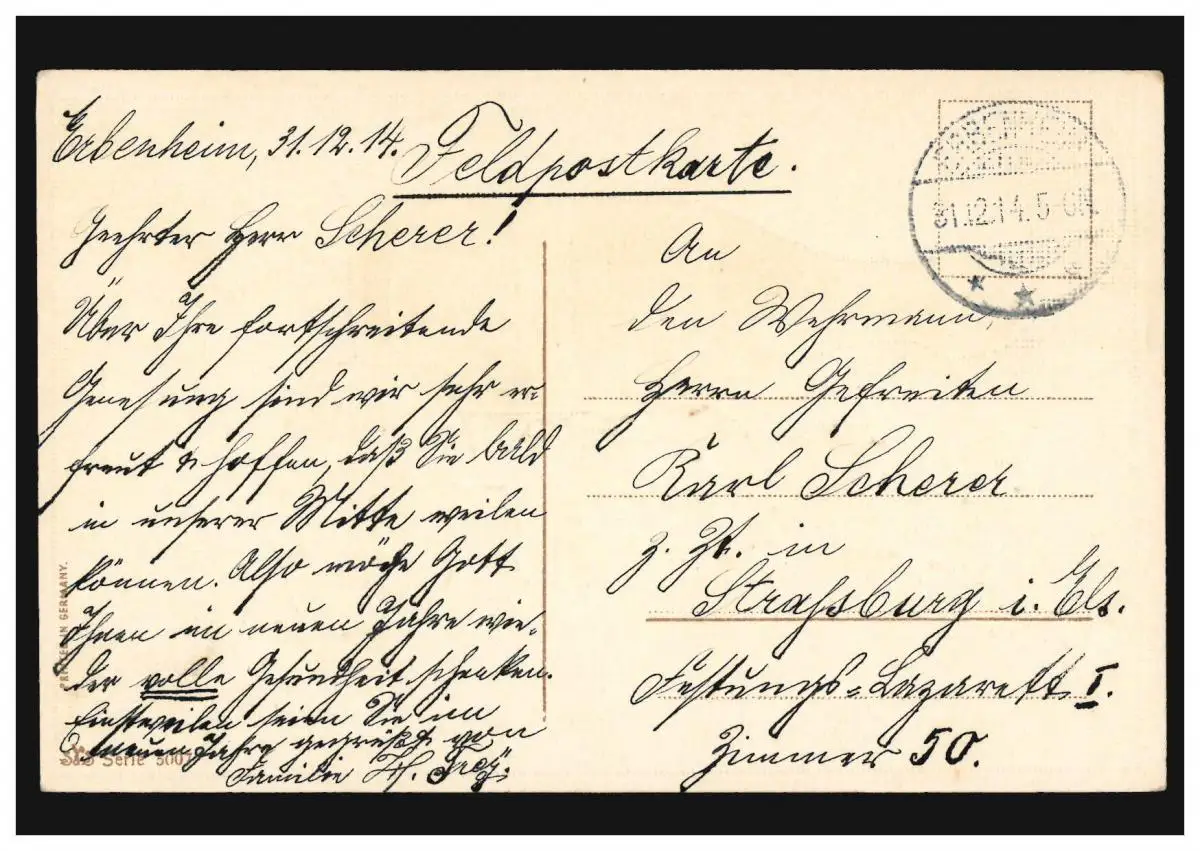 Erbenheim, 31.12.14.
Feldpostkarte.
Geehrter Herr Scherer!
Über Ihre fortschreitende
Genesung sind wir sehr er-
freut & hoffen, daß Sie bald
in unserer Mitte weilen
können. Also möge Gott
Ihnen im neuen Jahre wie-
der volle Gesundheit schenken.
Einstweilen seien Sie im
neuen Jahre gegrüßt von
Familie
An
den Wehrmann,
Herrn Gefreiten
Karl Scherer
z. Zt. in
Strassburg i. Els.
Festungs-Lazarett I.
Zimmer 50.
ERBENHEIM
31.12.14. 5-6N.
PRINTED IN GERMANY.
Serie 5001